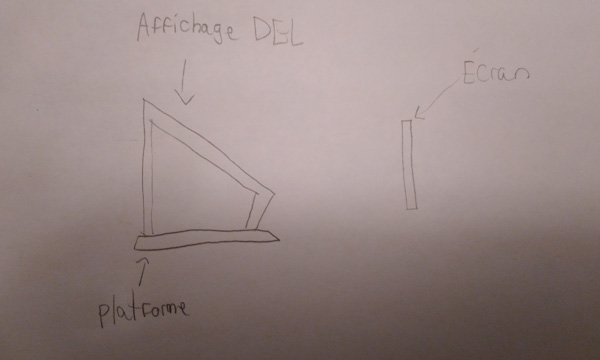 Affichage DEL
Écran
Platforme